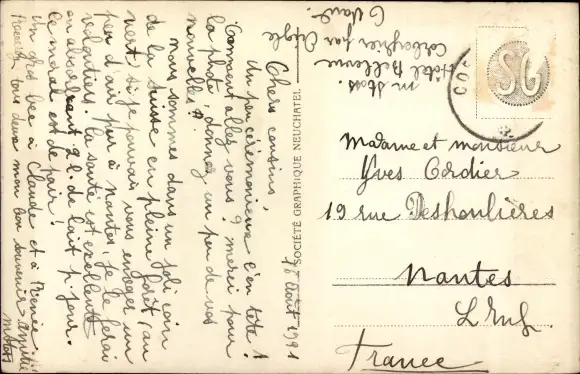 Chers cousins,
Un peu cérémonieuse l'en tête !
Comment allez vous ? merci pour
la photo, donnez un peu de vos
nouvelles ?
nous sommes dans un joli coin
de la Suisse en pleine forêt, au
vert, si je pouvais vous envoyer un
peu d'air pur à Nantes, je le ferai
volontiers. la santé est excellente
en absorbant 2 l. de lait p. jour.
le moral est de pair !
Un gros bec à Claude et à
tous deux mon bon souvenir
Hôtel Bellevue
Corbeyrier par Aigle
Vaud.
18 août 1941
SOCIÉTÉ GRAPHIQUE NEUCHATEL
SG
CO
Madame et monsieur
Yves Cordier
19 rue Deshoulières
Nantes
L. Inf.
France